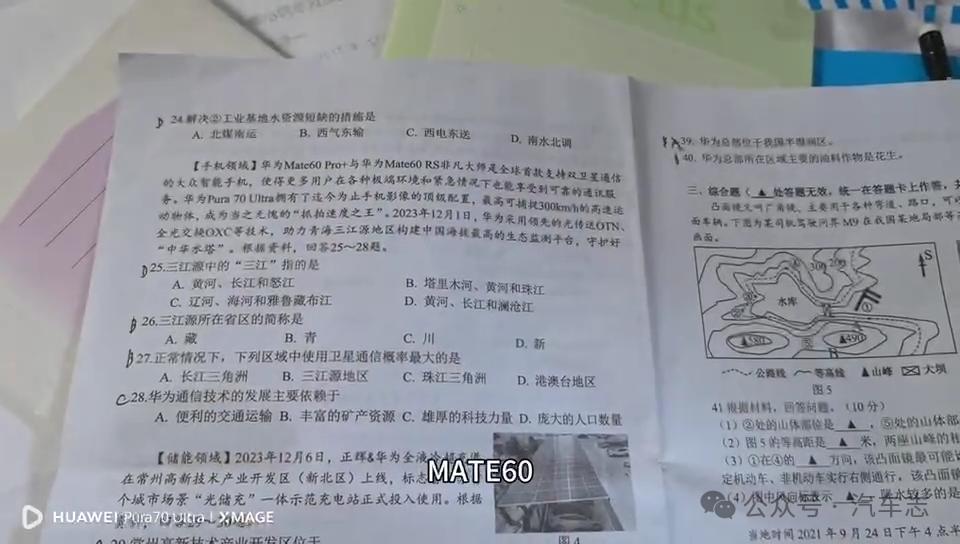 D 24.解决②工业基地水资源短缺的措施是
A. 北煤南运 B. 西气东输 C. 西电东送 D. 南水北调
【手机领域】华为Mate60 Pro+与华为Mate60 RS非凡大师是全球首款支持双卫星通信
的大众智能手机，使得更多用户在各种极端环境和紧急情况下也能享受到可靠的通讯服
务。华为Pura 70 Ultra拥有了迄今为止手机影像的顶级配置，最高可捕捉300km/h的高速运
动物体，成为当之无愧的“抓拍速度之王”。2023年12月1日，华为采用领先的光传送OTN、
全光交换OXC等技术，助力青海三江源地区构建中国海拔最高的生态监测平台，守护好
“中华水塔”。根据资料，回答25～28题。
D 25.三江源中的“三江”指的是
A. 黄河、长江和怒江 B. 塔里木河、黄河和珠江
C. 辽河、海河和雅鲁藏布江 D. 黄河、长江和澜沧江
B 26.三江源所在省区的简称是
A. 藏 B. 青 C. 川 D. 新
B 27.正常情况下，下列区域中使用卫星通信概率最大的是
A. 长江三角洲 B. 三江源地区 C. 珠江三角洲 D. 港澳台地区
C 28.华为通信技术的发展主要依赖于
A. 便利的交通运输 B. 丰富的矿产资源 C. 雄厚的科技力量 D. 庞大的人口数量
【储能领域】2023年12月6日，正辉&华为全液冷超充
在常州高新技术产业开发区（新北区）上线，标志
个城市场景“光储充”一体示范充电站正式投入使用。根据
29.常州高新技术产业开发区位于
图 4
39. 华为总部位于我国半湿润区。
40. 华为总部所在区域主要的油料作物是花生。
三、综合题（▲处答题无效，统一在答题卡上作答，共
凸面镜又叫广角镜，主要用于各种弯道、路口，可以
面车辆。下图为某司机驾驶问界M9在我国某地局部等高
画面。
S
300 200
水库
①
580
490
B
公路线 等高线 ▲山峰 大坝
图 5
41 根据材料，回答问题。（10 分）
（1）②处的山体部位是 ▲ ，⑤处的山体部
（2）图 5 的等高距是 ▲ 米，两座山峰的相
（3）①在④的 ▲ 方向，该凸面镜最可能
定机动车、非机动车实行右侧通行，该凸面镜
（4）图中风向标表示 ▲
当地时间 2021 年 9 月 24 日下午 4 点半
MATE60
HUAWEI Pura70 Ultra | XMAGE
公众号 · 汽车志